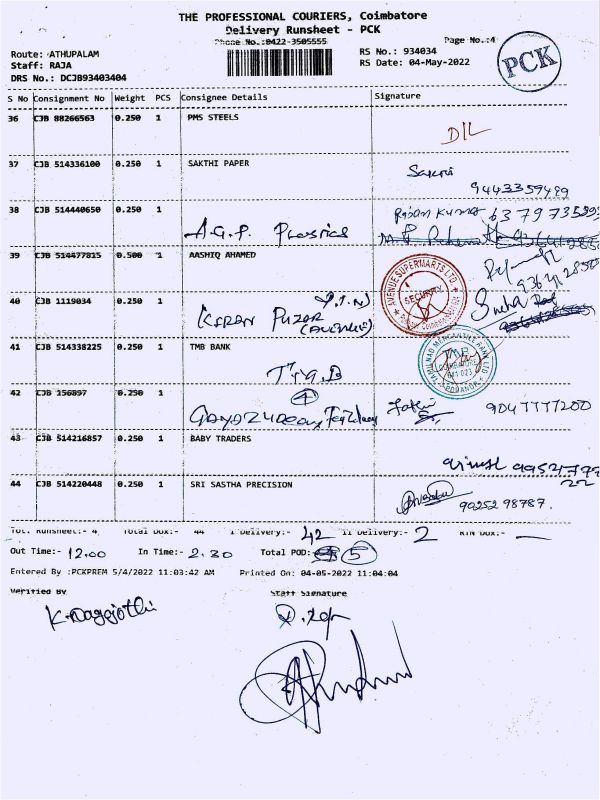 THE PROFESSIONAL COURIERS, Coimbatore
Delivery Runsheet - PCK
Phone No.:0422-3505555
Page No.:4
Route: ATHUPALAM
RS No.: 934034
Staff: RAJA
RS Date: 04-May-2022
DRS No.: DCJB93403404
PCK
S No Consignment No Weight PCS Consignee Details Signature
36 CJB 88266563 0.250 1 PMS STEELS
D/L
37 CJB 514336100 0.250 1 SAKTHI PAPER
9443359489
38 CJB 514440650 0.250 1
A.G.P. Plastics
39 CJB 514477815 0.500 1 AASHIQ AHAMED
AVENUE SUPERMARTS LTD.
SECURITY
40 CJB 1119034 0.250 1
Sneha
41 CJB 514338225 0.250 1 TMB BANK
TAMILNAD MERCANTILE BANK LTD
TMB
COIMBATORE
641 023
42 CJB 156897 0.250 1
4
9047777200
43 CJB 514216857 0.250 1 BABY TRADERS
44 CJB 514220448 0.250 1 SRI SASTHA PRECISION
90252 98787.
Tot. Runsheet:- 4 Total Dox:- 44 I Delivery:- 42 II Delivery:- 2 RTN Dox:- —
Out Time:- 12.00 In Time:- 2.30 Total POD: 5
Entered By :PCKPREM 5/4/2022 11:03:42 AM Printed On: 04-05-2022 11:04:04
Verified By Staff Signature